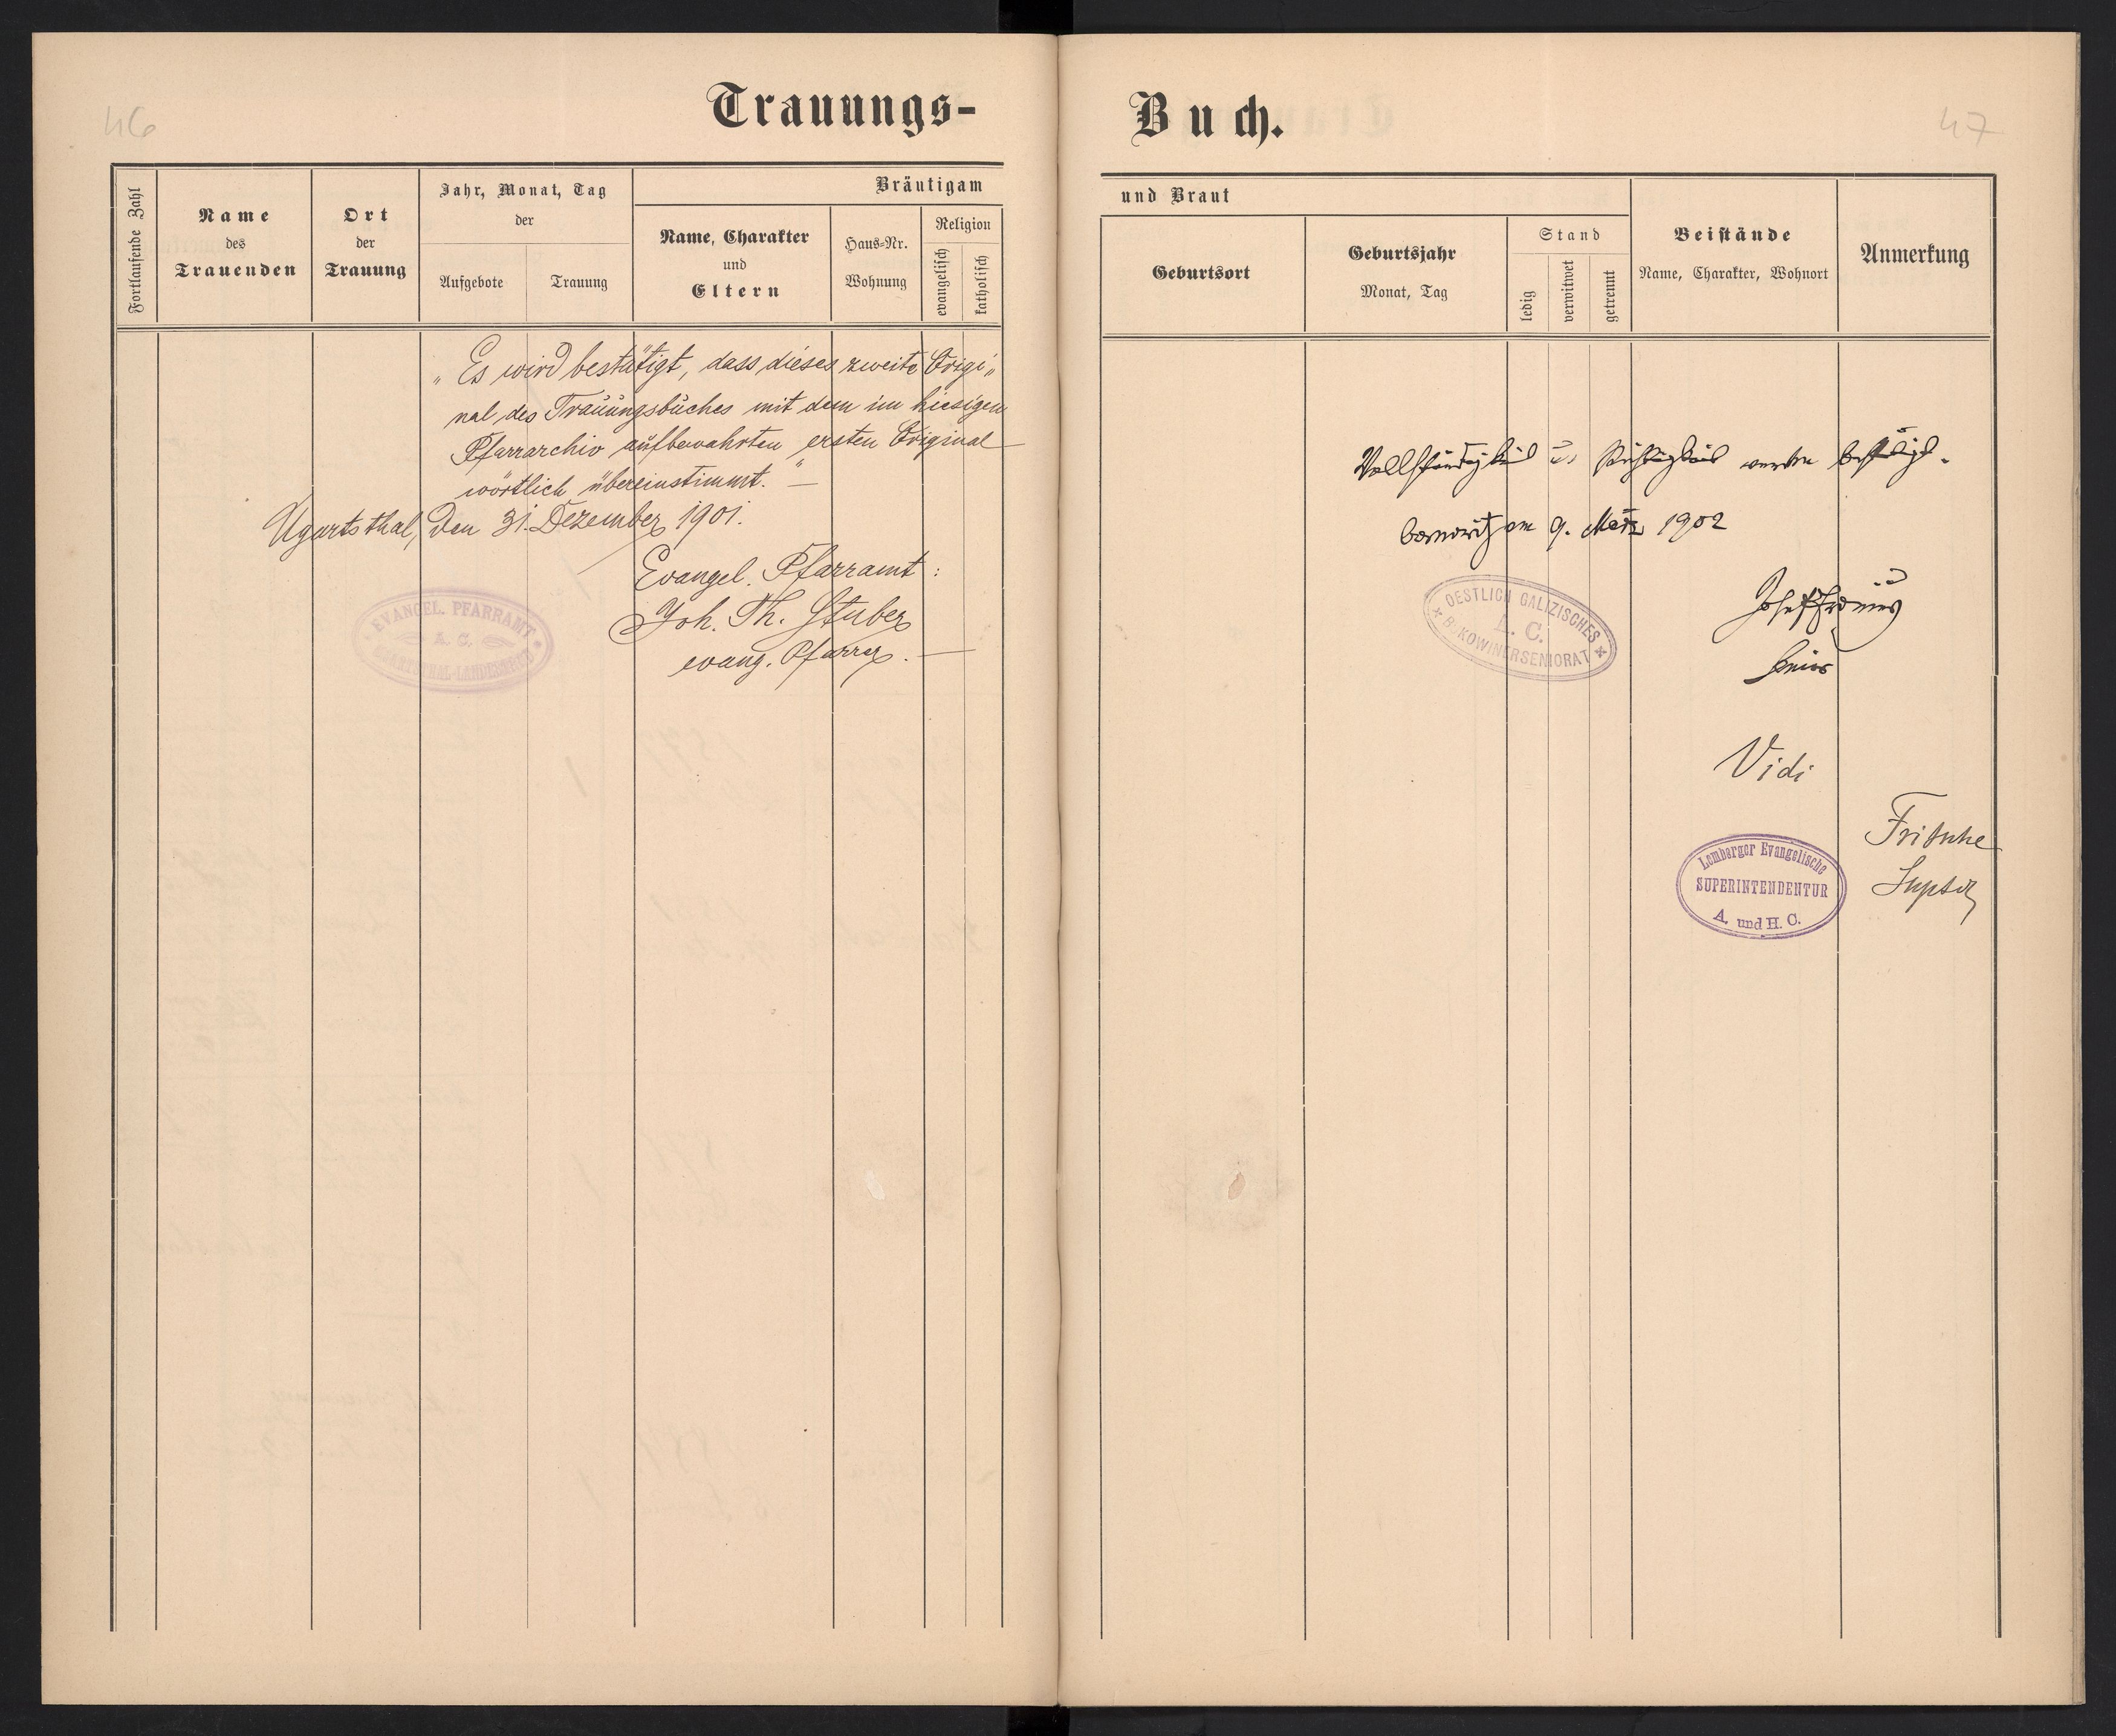 46
Trauungs-
Fortlaufende Zahl
Name
des
Trauenden
Ort
der
Trauung
Jahr, Monat, Tag
der
Aufgebote
Trauung
Bräutigam
Name, Charakter
und
Eltern
Haus=Nr.
Wohnung
Religion
evangelisch
katholisch
„Es wird bestätigt, dass dieses zweite Origi„
nal des Trauungsbuches mit dem im hiesigen
Pfarrarchiv aufbewahrten ersten Original
wörtlich übereinstimmt.“ —
Ugartsthal, den 31. Dezember 1901.
Evangel. Pfarramt:
Joh. Th. Stuber
evang. Pfarrer. —
EVANGEL. PFARRAMT
A. C.
47
Buch.
und Braut
Geburtsort
Geburtsjahr
Monat, Tag
Stand
ledig
verwitwet
getrennt
Beistände
Name, Charakter, Wohnort
Anmerkung
Vollständigkeit u. Richtigkeit werden bestätigt.
am 9. März 1902
Josef
Senior
OESTLICH GALIZISCHES
A. C.
BUKOWINERSENIORAT
Vidi
Fritsche
Suptdt
Lemberger Evangelische
SUPERINTENDENTUR
A. und H. C.